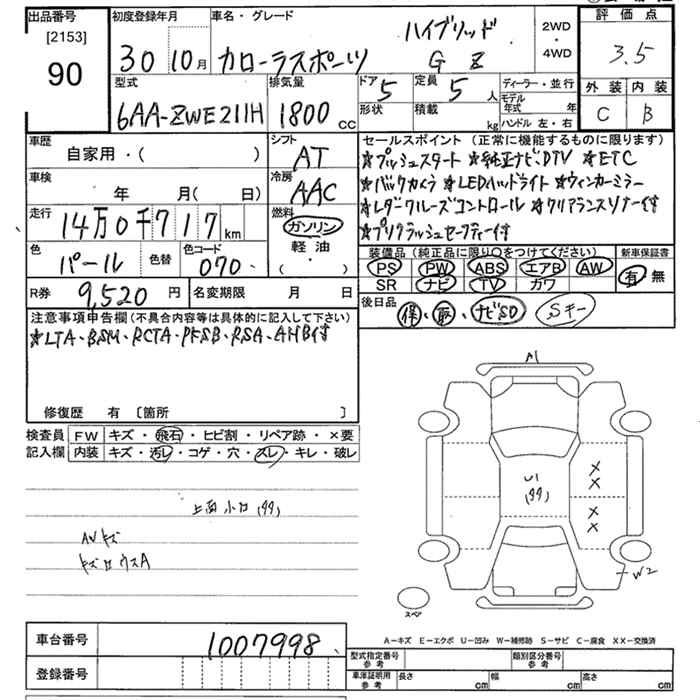 出品番号
[2153]
90
初度登録年月
30 10月
車名・グレード
カローラスポーツ
ハイブリッド
G Z
2WD
・
4WD
評価点
3.5
外装 内装
C B
型式
6AA-ZWE211H
排気量
1800 cc
ドア 5
形状
定員 5 人
積載 kg
ディーラー・並行
モデル年式 年
ハンドル 左・右
車歴
自家用・( )
車検
年 月( 日)
走行
14万0千717 km
色
パール
色替
色コード
070
シフト
AT
冷房
AAC
燃料
ガソリン
軽油
・( )
セールスポイント (正常に機能するものに限ります)
★プッシュスタート ★純正ナビ、DTV ★ETC
★バックカメラ ★LEDヘッドライト ★ウィンカーミラー
★レーダークルーズコントロール ★クリアランスソナー付
★プリクラッシュセーフティー付
装備品 (純正品に限り○をつけてください)
PS PW ABS エアB AW
SR ナビ TV カワ
新車保証書
有 無
R券 9,520 円
名変期限 月 日
後日品
保・取・ナビSD Sキー
注意事項申告欄 (不具合内容等は具体的に記入して下さい)
★LTA・BSM・RCTA・PKSB・RSA・AHB付
修復歴 有 [箇所 ]
検査員記入欄
FW キズ・飛石・ヒビ割・リペア跡・×要
内装 キズ・汚レ・コゲ・穴・スレ・キレ・破レ
AVキズ
A1
U1
X
X
X
X
W2
スペア
A−キズ E−エクボ U−凹み W−補修跡 S−サビ C−腐食 XX−交換済
車台番号
1007998
登録番号
型式指定番号 参考
類別区分番号 参考
車庫証明用 参考
長さ cm
幅 cm
高さ cm